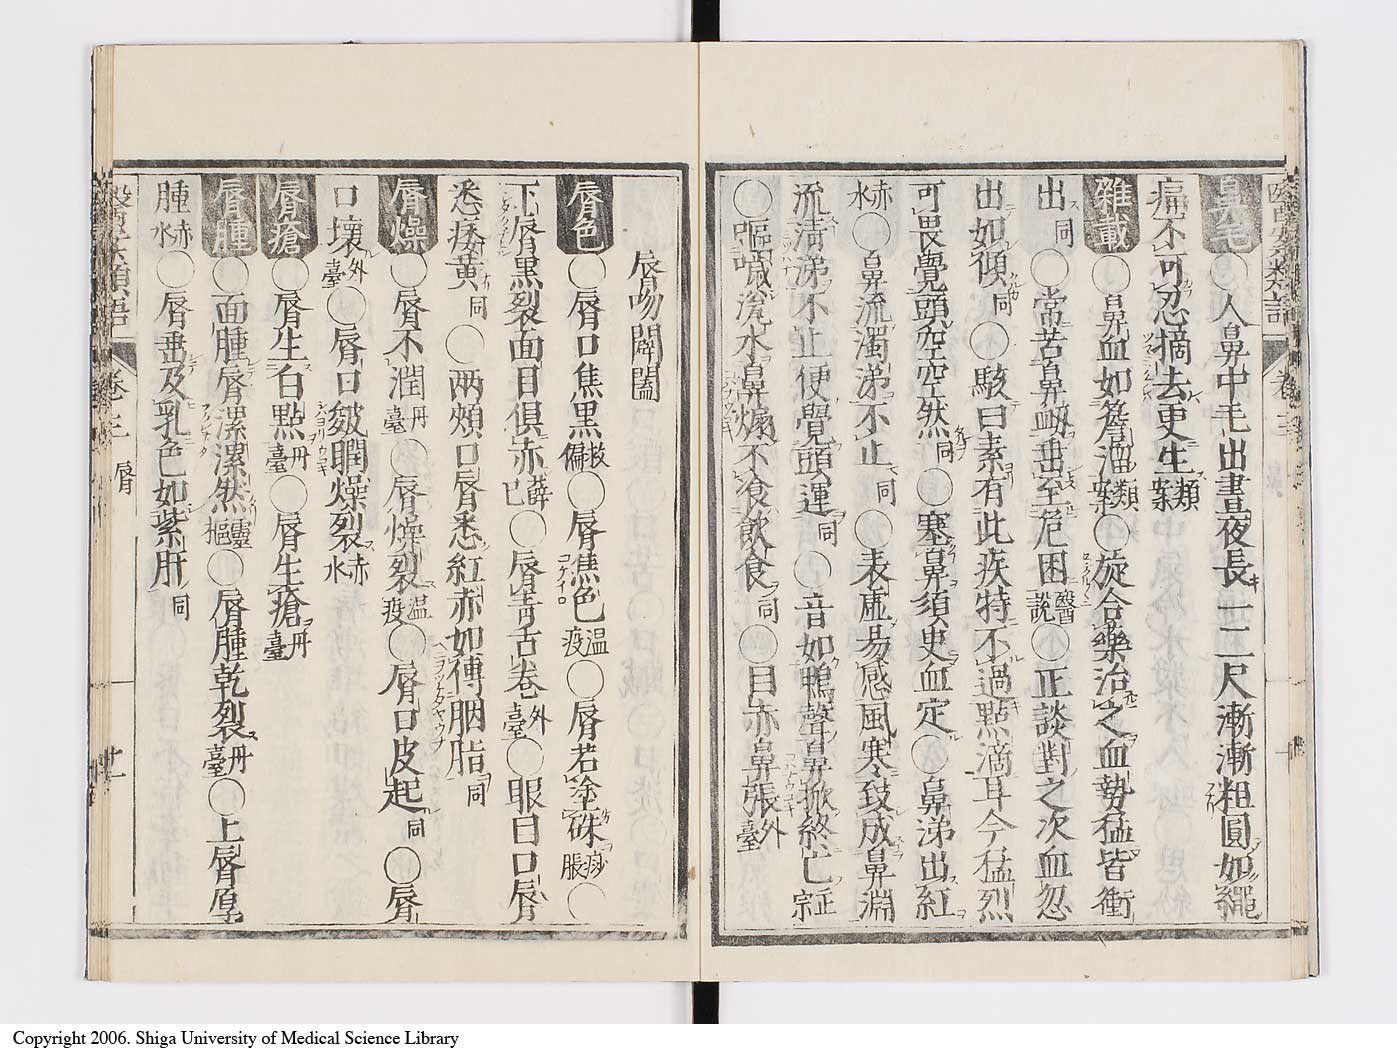 鼻毛 ○人鼻中毛出晝夜長一二尺漸漸粗圓如繩
痛不可忍摘去更生類案
雜載 ○鼻血如簷溜類案○旋合藥治之血勢猛皆衝
出同○常苦鼻衄垂至危困醫說○正談對之次血忽
出如傾同○駭曰素有此疾特不過點滴耳今猛烈
可畏覺頭空空然同○塞鼻須臾血定○鼻涕出紅
赤水○鼻流濁涕不止同○表虛易感風寒致成鼻淵
流清涕不止便覺頭運同○音如鴨聲鼻掀終亡正宗
○嘔噦流水鼻煽不食飲食同○目赤鼻張外臺
脣吻闢闔
脣色 ○脣口焦黑救偏○脣焦色温疫○脣若塗硃痧脹○
下脣黑裂面目俱赤薛已○脣青舌卷外臺○眼目口脣
悉痿黃同○兩頰口脣悉紅赤如傅胭脂同
脣燥 ○脣不潤丹臺○脣燥裂温疫○脣口皮起同○脣
口壞外臺○脣口皴瞤燥裂赤水
脣瘡 ○脣生白點丹臺○脣生瘡丹臺
脣腫 ○面腫脣漯漯然靈樞○脣腫乾裂丹臺○上脣厚
腫赤水○脣垂及乳色如紫肝同
卷三 脣 廿一
Copyright 2006. Shiga University of Medical Science Library